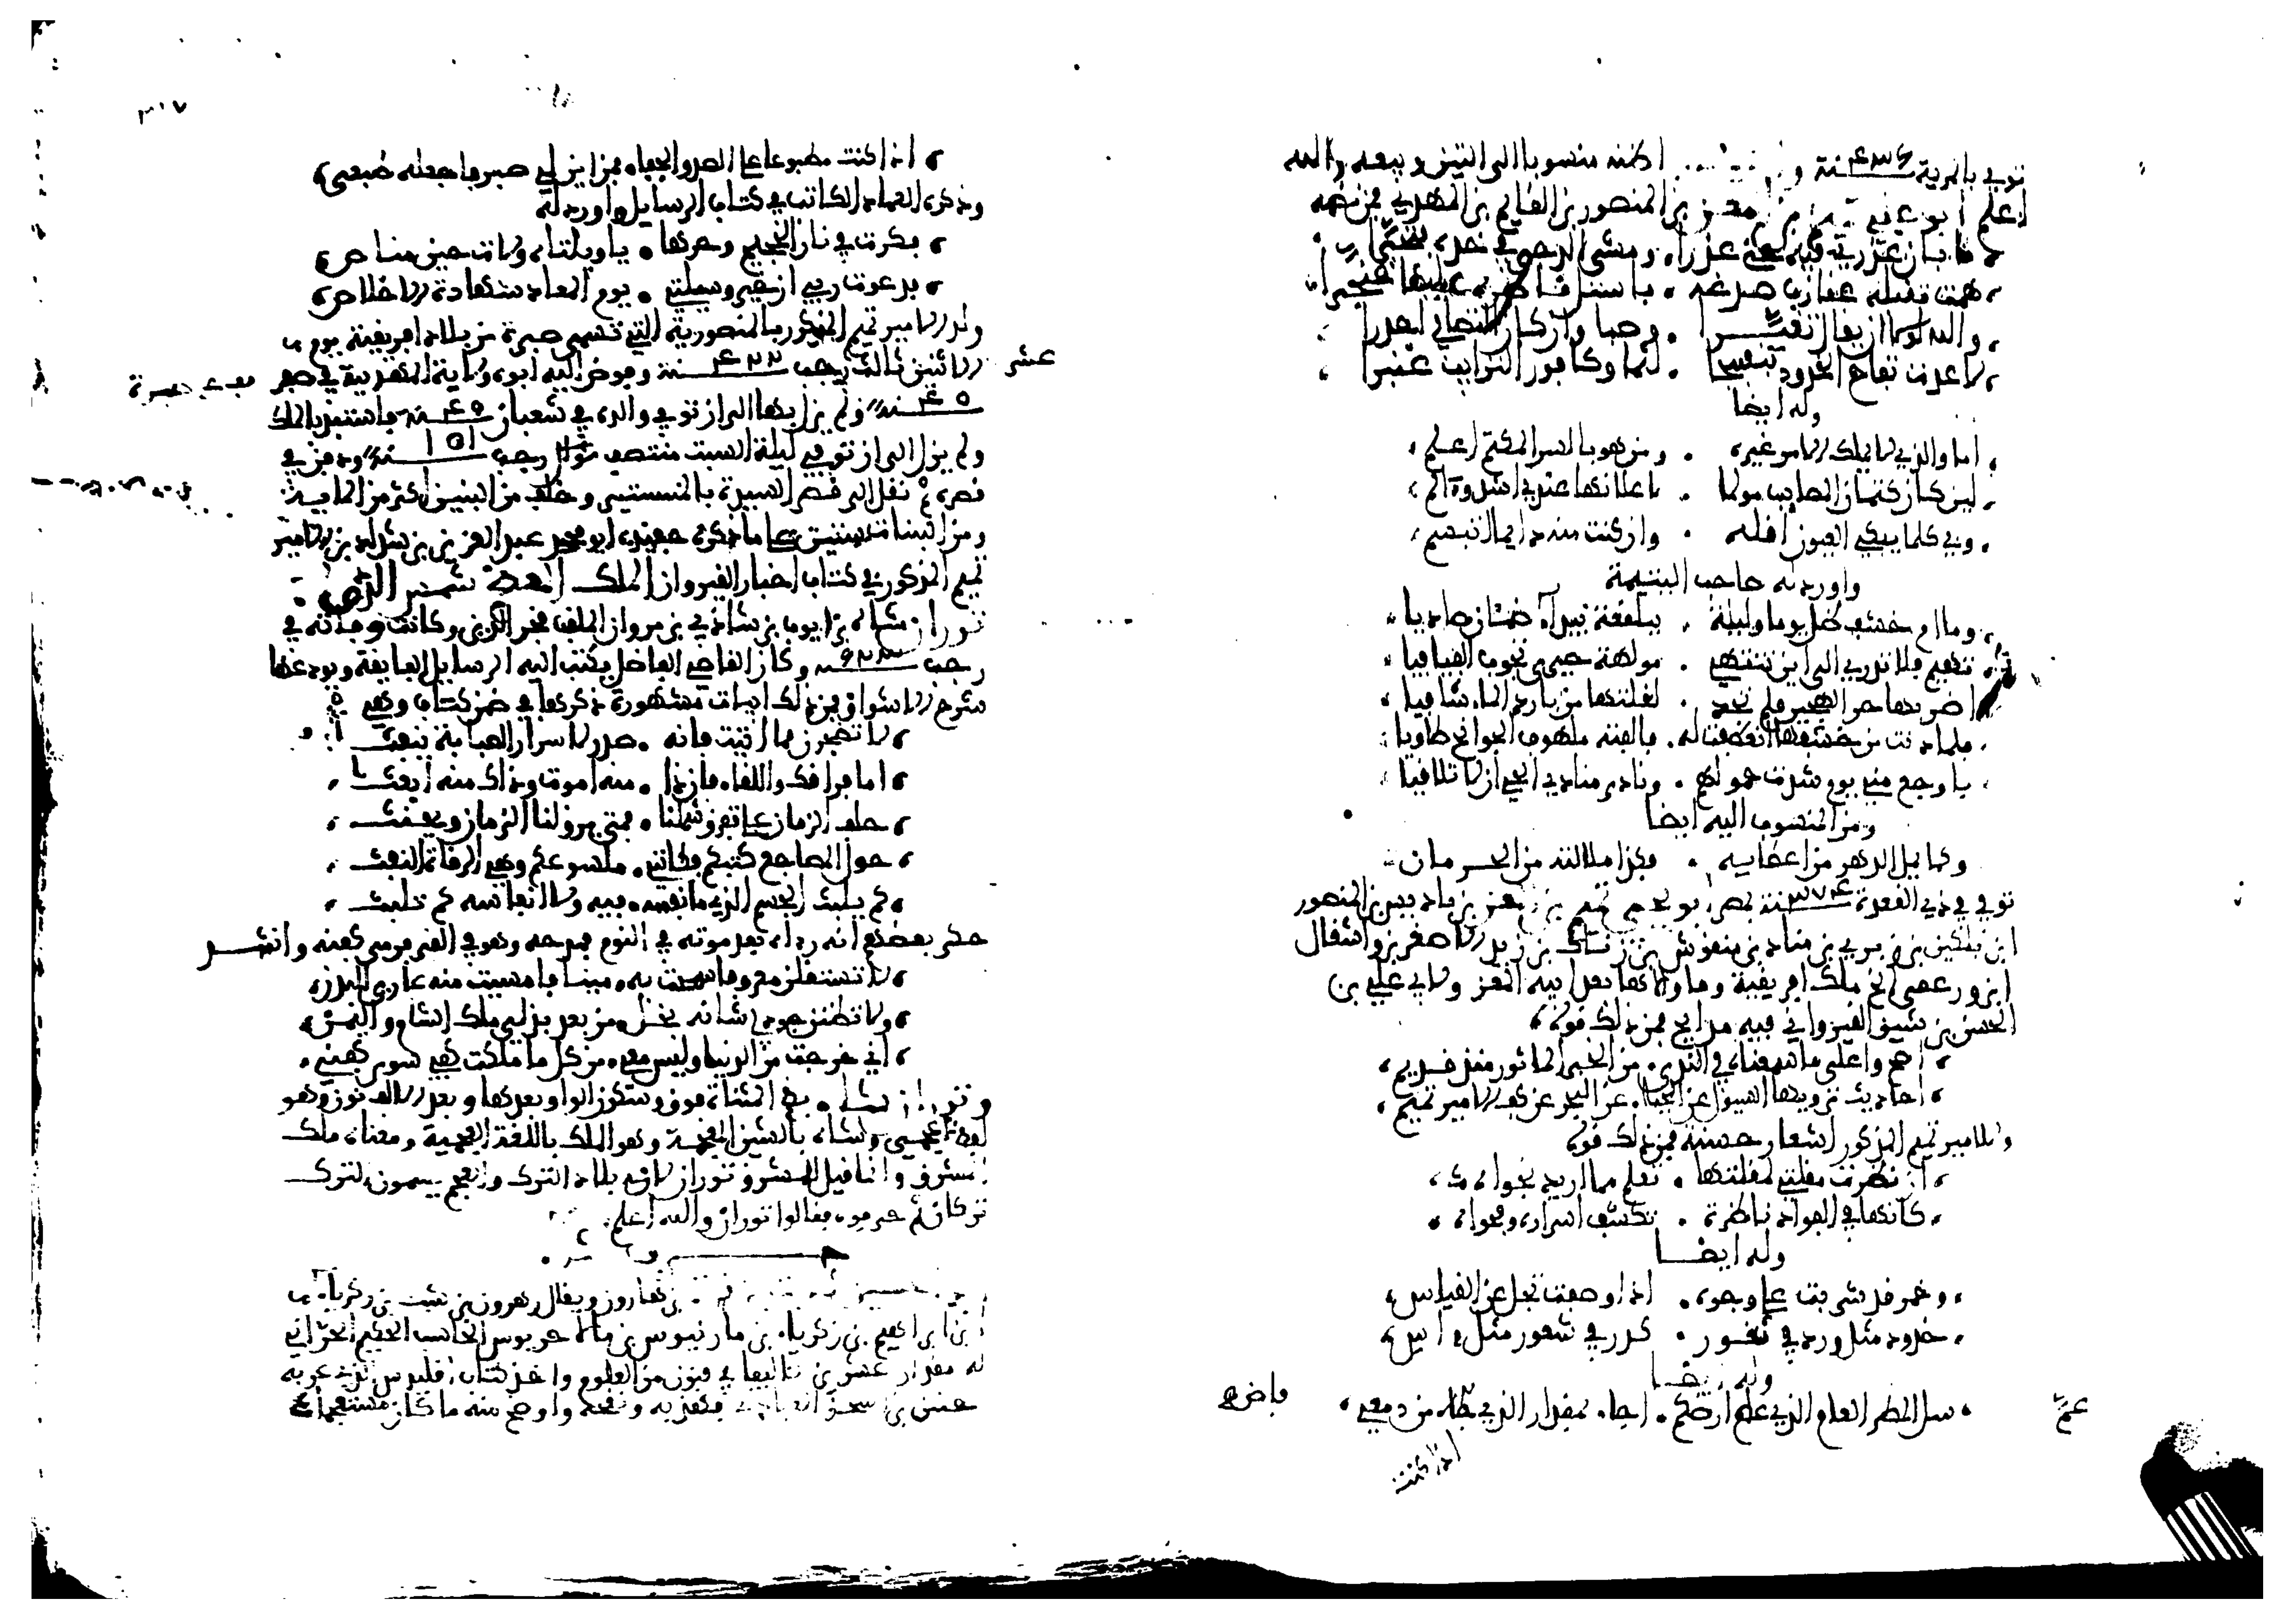 توفي بالمرية سنة ٤٣٦ اظنه منسوبا الى التين وبيعه والله
اعلم ابو علي تميم بن المعز بن المنصور بن القائم بن المهدي فمن نظمه
ما بان عذري فيه حتى عذرا . ومشى الدجى في خده فتحيرا
همت تقبله عقارب صدغه . فاستل ناظره عليها خنجرا
والله لولا ان يقال تغيرا . وصبا وان كان التصابي اجدرا
لاعدت تفاح الخدود بنفسجا . لثما وكافور الترايب عنبرا
وله ايضا
اما والذي لا يملك الامر غيره . ومن هو بالسر المكتم اعلم
لين كان كتمان المصايب مولما . لاعلانها عندي اشد وآلم
وبي كلما يبكي العيون اقله . وان كنت منه دايما اتبسم
واورد له صاحب اليتيمة
وما ام خشف ظل يوما وليلة . ببلقعة بيداء ظمئان صاديا
تهيم فلا تدري الى اين تنتهي . مولهة حيرى تجوب الفيافيا
اضر بها حر الهجير فلم تجد . لغلتها من بارد الماء شافيا
فلما دنت من خشفها انعطفت له . فالفته ملهوف الجوانح طاويا
باوجع مني يوم شدت حمولهم . ونادى منادي الحي ان لا تلاقيا
ومن المنسوب اليه ايضا
وكما يمل الدهر من اعطايه . فكذا ملالته من الحرمان
توفي في ذي القعدة سنة ٣٧٤ بمصر ابو يحيى تميم بن المعز بن باديس بن المنصور
ابن بلكين بن زيري بن مناد بن منقوش بن زناك بن زيد الاصغر بن واشفال
ابن وزعفى الخ ملك افريقية وما والاها بعد ابيه المعز ولابي علي بن
الحسن بن رشيق القيرواني فيه مدايح فمن ذلك قوله
اصح واعلى ما سمعناه في الندى . من الخبر الماثور منذ قديم
احاديث ترويها السيول عن الحيا . عن البحر عن كف الامير تميم
وللامير تميم المذكور اشعار حسنة فمن ذلك قوله
ان نظرت مقلتي لمقلتها . تعلم مما اريد نجواه
كانها في الفواد ناظرة . تكشف اسراره وفحواه
وله ايضا
وخمر قد شربت على وجوه . اذا وصفت تجل عن القياس
خدود مثل ورد في ثغور . كدر في شعور مثل اس
وله ايضا
سل المطر العام الذي عم ارضكم . اجاء بمقدار الذي فاض من دمعي
عم
فاض صح
اذا كنت
٣١٧
اذا كنت مطبوعا على الصد والجفاء فمن اين لي صبر فاجعله طبعي
وذكره العماد الكاتب في كتاب الرسايل واورد له
فكرت في نار الجحيم وحرها . يا ويلتاه ولات حين مناص
فدعوت ربي ان خير وسيلتي . يوم المعاد شهادة الاخلاص
ولد الامير تميم المذكور بالمنصورية التي تسمى صبرة من بلاد افريقية يوم
الاثنين ثالث رجب سنة ٤٢٢ وفوض اليه ابوه ولاية المهدية في صفر
عشر
سنة ٤٥ ولم يزل بها الى ان توفي والده في شعبان سنة ٤٥ فاستبد بالملك
ولم يزل الى ان توفي ليلة السبت منتصف رجب سنة ٥٠١ ودفن في
قصره ثم نقل الى قصر السيدة بالمنستير وخلف من البنين اكثر من الماية
ومن البنات ستين على ما ذكره حفيده ابو محمد عبد العزيز بن شداد بن الامير
تميم المذكور في كتاب اخبار القيروان الملك المعظم شمس الدين
توران شاه بن ايوب بن شاذي بن مروان الملقب فخر الدين وكانت وفاته في
رجب سنة وكان القاضي الفاضل يكتب اليه الرسايل الفايقة ويودعها
شرح الاشواق فمن ذلك ابيات مشهورة ذكرها في ضمن كتاب وهي
لا تضجرن مما اتيت فانه . صدر لاسرار الصبابة ينفث
اما فراقك واللقاء فان ذا . منه اموت وذاك منه ابعث
حلف الزمان على تفرق شملنا . فمتى يرق لنا الزمان ويحنث
حول المضاجع كتبكم فكانني . ملسوعكم وهي الرقاة النفث
كم يلبث الجسم الذي ما نفسه . فيه ولا انفاسه كم تلبث
حكى بعضهم انه رءاه بعد موته في النوم فمدحه وهو في القبر فرمى كفنه وانشد
لا تستقلن معروفا سمحت به . ميتا فامسيت منه عاري البدن
ولا تظنن جودي شانه بخل . من بعد بذلي ملك الشام واليمن
اني خرجت من الدنيا وليس معي . من كل ما ملكت كفي سوى كفني
وتوران شاه بضم المثناة فوق وسكون الواو وبعدها وبعد الالف نون وهو
لفظ اعجمي وشاه بالشين المعجمة وهو الملك باللغة العجمية ومعناه ملك
المشرق وانما قيل للمشرق توران لانه بلاد الترك والعجم يسمون الترك
تركان ثم حرفوه فقالوا توران والله اعلم
بن هارون ويقال زهرون بن ثابت بن زكرياء
ابن ابراهيم بن زكرياء بن مارنيوس بن مالاجريوس الحاسب الحكيم الحراني
له مقدار عشرين تاليفا في فنون من العلوم واخذ كتاب اقليدس الذي عربه
حنين بن اسحق العبادي فهذبه ونقحه واوضح منه ما كان مستعجما